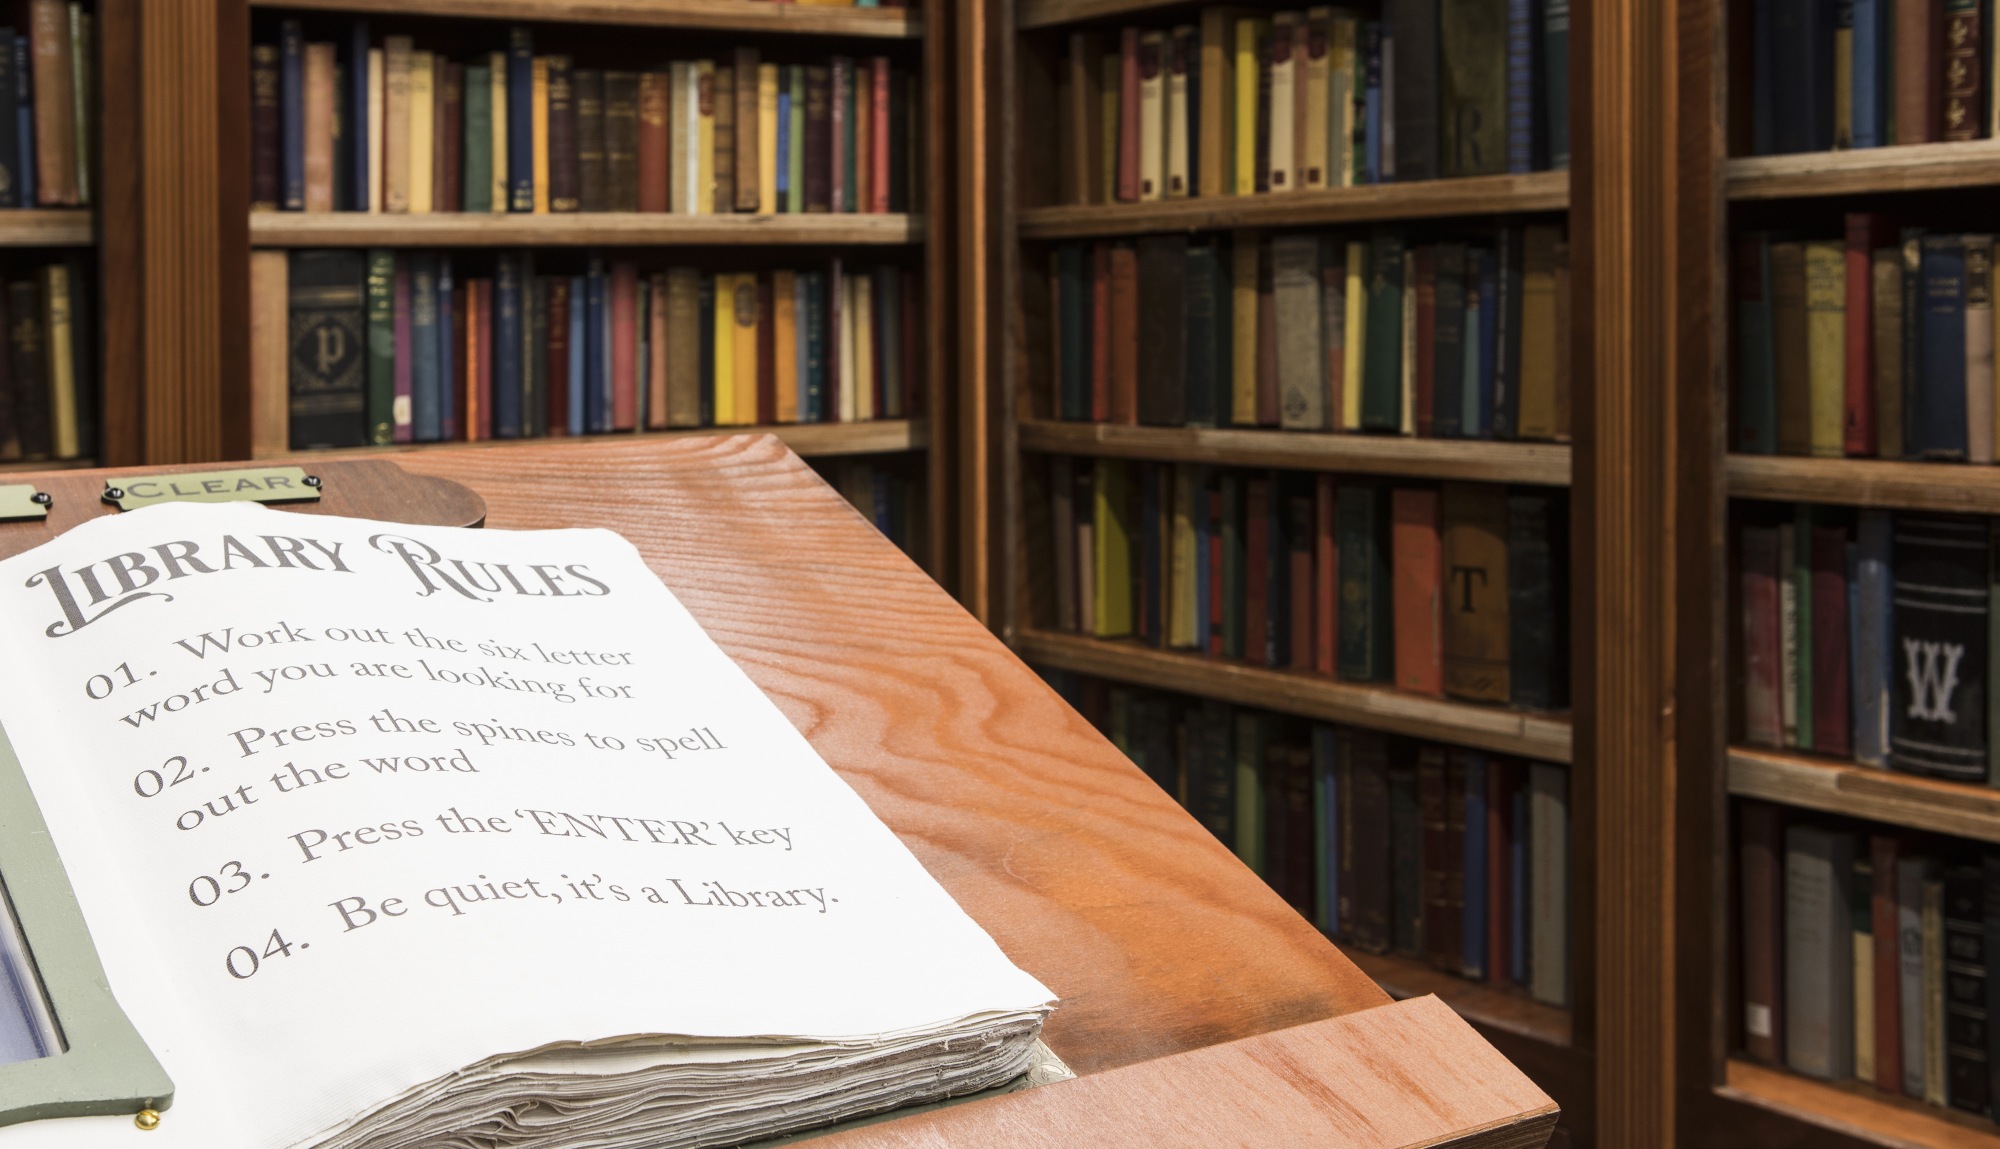 CLEAR
LIBRARY RULES
01. Work out the six letter
word you are looking for
02. Press the spines to spell
out the word
03. Press the 'ENTER' key
04. Be quiet, it's a Library.
R
P
T
W